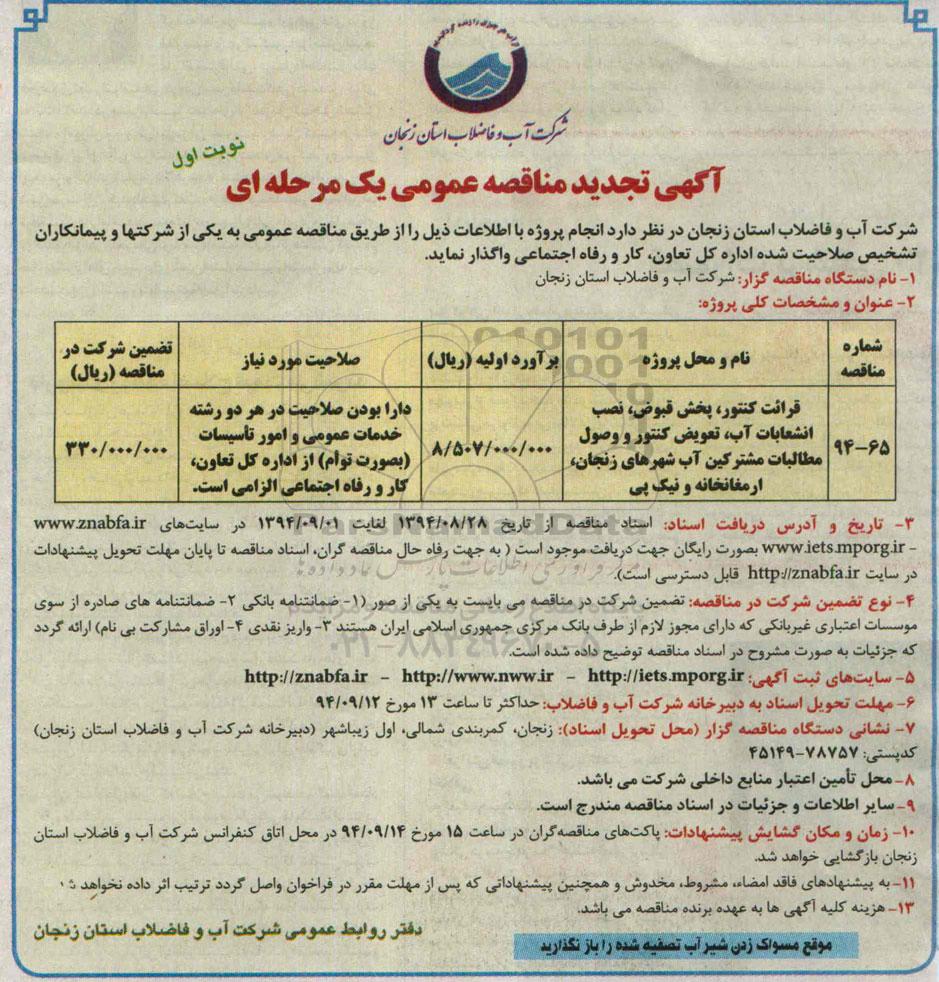 شرکت آب و فاضلاب استان زنجان
نوبت اول
آگهی تجدید مناقصه عمومی یک مرحله ای
شرکت آب و فاضلاب استان زنجان در نظر دارد انجام پروژه با اطلاعات ذیل را از طریق مناقصه عمومی به یکی از شرکتها و پیمانکاران
تشخیص صلاحیت شده اداره کل تعاون، کار و رفاه اجتماعی واگذار نماید.
۱- نام دستگاه مناقصه گزار: شرکت آب و فاضلاب استان زنجان
۲- عنوان و مشخصات کلی پروژه:
شماره مناقصه | نام و محل پروژه | برآورد اولیه (ریال) | صلاحیت مورد نیاز | تضمین شرکت در مناقصه (ریال)
۹۴-۶۵ | قرائت کنتور، پخش قبوض، نصب انشعابات آب، تعویض کنتور و وصول مطالبات مشترکین آب شهرهای زنجان، ارمغانخانه و نیک پی | ۸/۵۰۷/۰۰۰/۰۰۰ | دارا بودن صلاحیت در هر دو رشته خدمات عمومی و امور تأسیسات (بصورت توأم) از اداره کل تعاون، کار و رفاه اجتماعی الزامی است. | ۳۳۰/۰۰۰/۰۰۰
۳- تاریخ و آدرس دریافت اسناد: اسناد مناقصه از تاریخ ۱۳۹۴/۰۸/۲۸ لغایت ۱۳۹۴/۰۹/۰۱ در سایت‌های www.znabfa.ir
- www.iets.mporg.ir بصورت رایگان جهت دریافت موجود است ( به جهت رفاه حال مناقصه گران، اسناد مناقصه تا پایان مهلت تحویل پیشنهادات
در سایت http://znabfa.ir قابل دسترسی است).
۴- نوع تضمین شرکت در مناقصه: تضمین شرکت در مناقصه می بایست به یکی از صور (۱- ضمانتنامه بانکی ۲- ضمانتنامه های صادره از سوی
موسسات اعتباری غیربانکی که دارای مجوز لازم از طرف بانک مرکزی جمهوری اسلامی ایران هستند ۳- واریز نقدی ۴- اوراق مشارکت بی نام) ارائه گردد
که جزئیات به صورت مشروح در اسناد مناقصه توضیح داده شده است.
۵- سایت‌های ثبت آگهی: http://znabfa.ir - http://www.nww.ir - http://iets.mporg.ir
۶- مهلت تحویل اسناد به دبیرخانه شرکت آب و فاضلاب: حداکثر تا ساعت ۱۳ مورخ ۹۴/۰۹/۱۲
۷- نشانی دستگاه مناقصه گزار (محل تحویل اسناد): زنجان، کمربندی شمالی، اول زیباشهر (دبیرخانه شرکت آب و فاضلاب استان زنجان)
کدپستی: ۷۸۷۵۷-۴۵۱۴۹
۸- محل تأمین اعتبار منابع داخلی شرکت می باشد.
۹- سایر اطلاعات و جزئیات در اسناد مناقصه مندرج است.
۱۰- زمان و مکان گشایش پیشنهادات: پاکت‌های مناقصه‌گران در ساعت ۱۵ مورخ ۹۴/۰۹/۱۴ در محل اتاق کنفرانس شرکت آب و فاضلاب استان
زنجان بازگشایی خواهد شد.
۱۱- به پیشنهادهای فاقد امضاء، مشروط، مخدوش و همچنین پیشنهاداتی که پس از مهلت مقرر در فراخوان واصل گردد ترتیب اثر داده نخواهد
۱۳- هزینه کلیه آگهی ها به عهده برنده مناقصه می باشد.
دفتر روابط عمومی شرکت آب و فاضلاب استان زنجان
موقع مسواک زدن شیر آب تصفیه شده را باز نگذارید
ParsNamadData